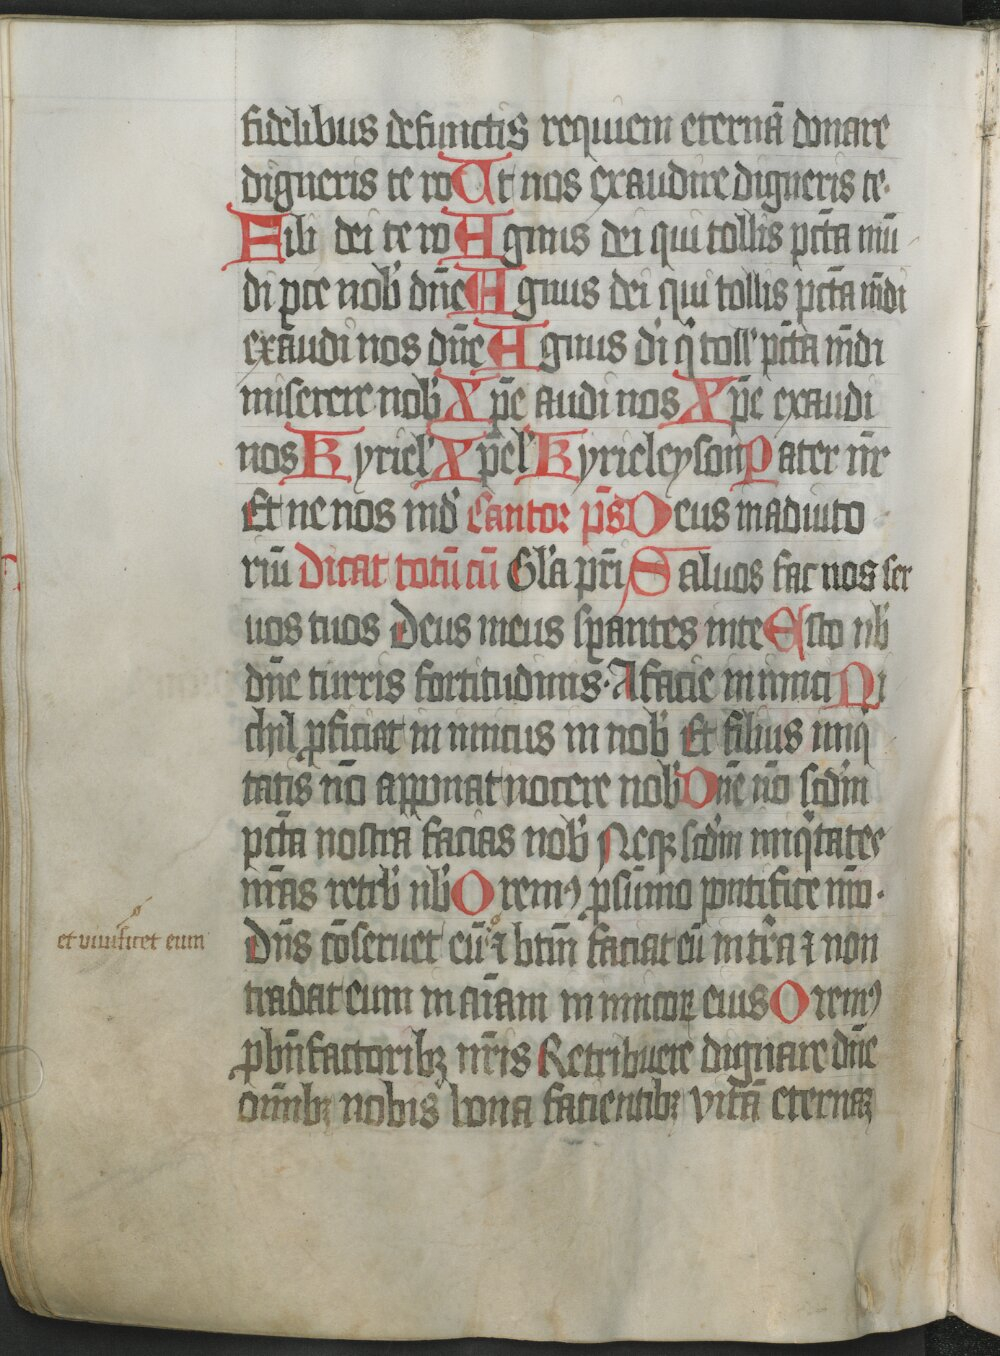 fidelibus defunctis requiem eternā donare
digneris te ro Ut nos exaudire digneris te·
Fili dei te ro Agnus dei qui tollis pctā mū
di pce nob̄ dn̄e Agnus dei qui tollis pctā mūdi
exaudi nos dn̄e Agnus di q̄ toll' pctā mūdi
miserere nob̄ Xpē audi nos Xpē exaudi
nos Kyriel' Xpēl' Kyrieleyson Pater nr̄
Et ne nos ind' Cantor ps̄ Deus in adiuto
riū Dicat totū cū Gl'a pr̄i Saluos fac nos ser
uos tuos Deus meus spantes in te Esto nb̄
dn̄e turris fortitudinis· A facie inimici Ni
chil pficiat inimicus in nob̄ Et filius iniq
tatis nō apponat nocere nob̄ Dn̄e nō scdm
pctā nostra facias nob̄ Neqꝫ scdm iniqtates
nr̄as retrib' nb̄ Oremꝰ p sūmo pontifice nr̄o·
Dn̄s cōseruet eū ⁊ btm̄ faciat eū in tr̄a ⁊ non
et viuificet eum
tradat eum in aīam inimicoꝝ eius Oremꝰ
p bn̄factoribꝫ nr̄is Retribuere dignare dn̄e
om̄ibꝫ nobis bona facientibꝫ vitā eternaꝫ